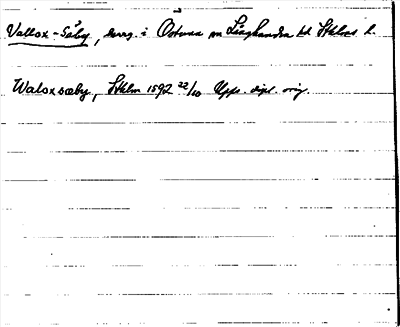 Vallox-Säby, herrg. i Östuna sn Långhundra hd Sthlms l.
Waloxsæby, Sthlm 1592 22/10 Upps. dipl. orig.